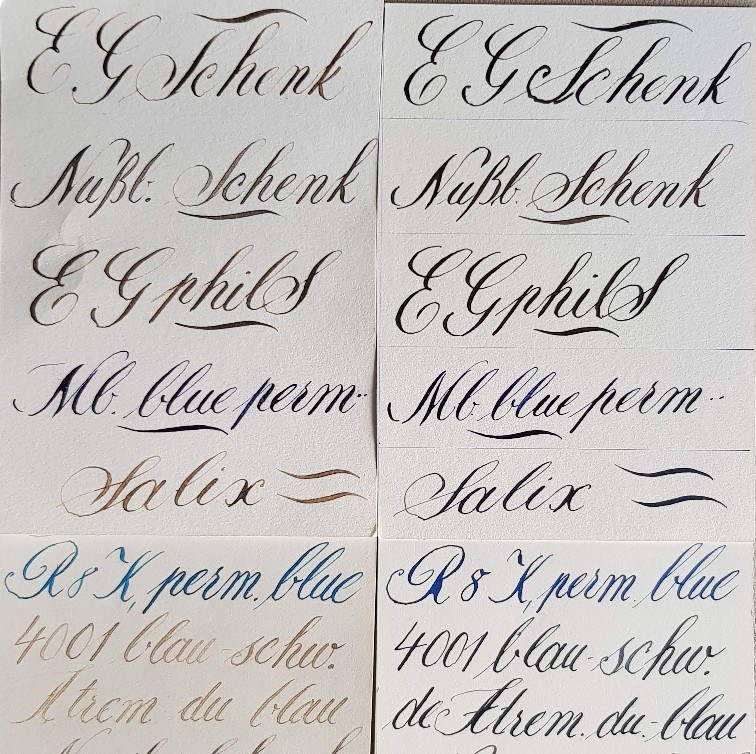 E G Schenk
Nußb. Schenk
E G philS
Mb. blue perm..
Salix
R & K, perm. blue
4001 blau-schw.
Atrem du blau
E G Schenk
Nußb. Schenk
E G philS
Mb. blue perm..
Salix
R & K, perm. blue
4001 blau-schw.
de Atrem. du.-blau